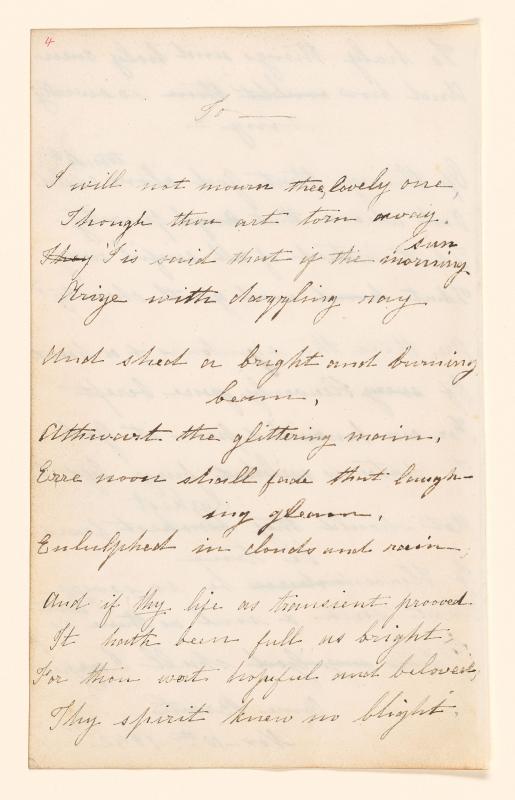 4
To ———
I will not mourn thee, lovely one,
Though thou art torn away.
They 'T is said that if the morning sun
Arize with dazzling ray
And shed a bright and burning
beam,
Athwart the glittering main,
Erre noon shall fade that laugh-
ing gleam,
Enlulphed in clouds and rain,
And if thy life as transient prooved
It hath been full as bright,
For thou wert hopeful and beloved,
Thy spirit knew no blight.